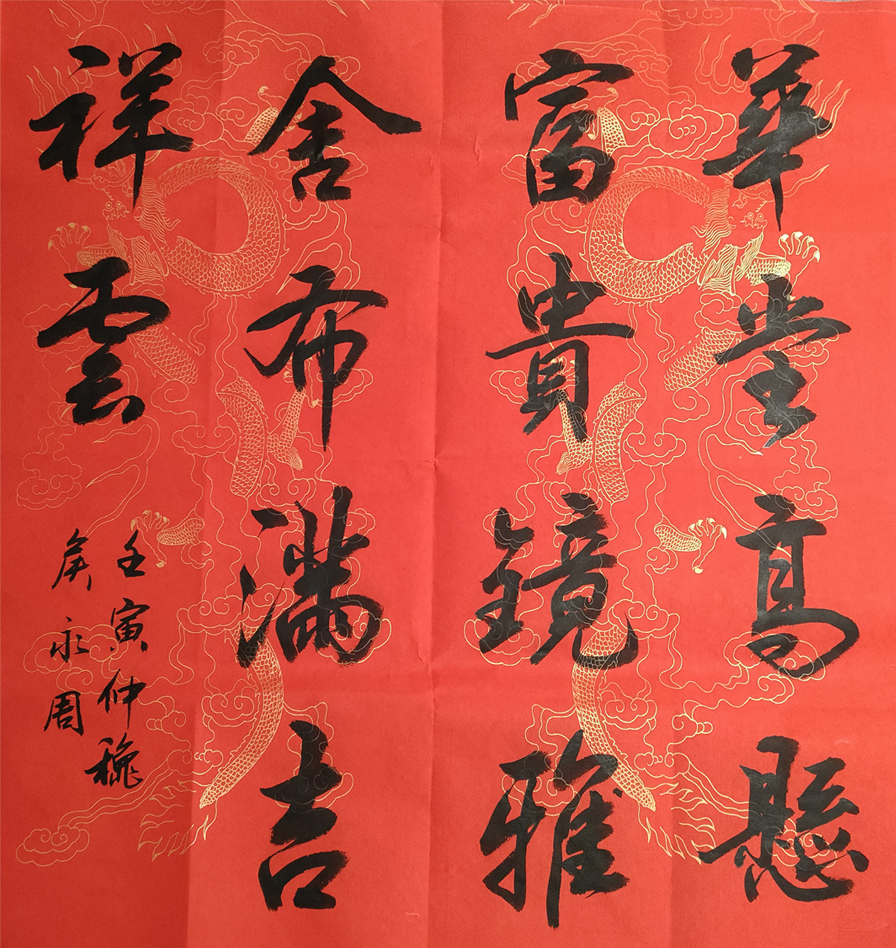 華堂高懸
富貴鏡雅
舍布滿吉
祥雲
壬寅仲穐
矦永周